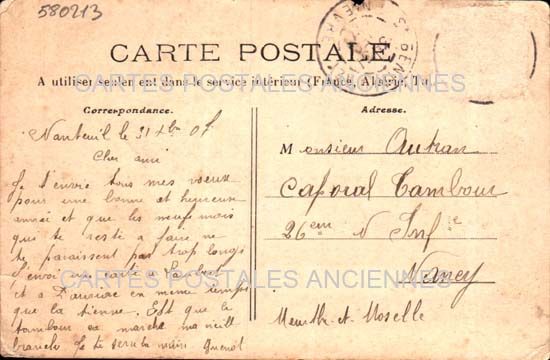 580213
CARTE POSTALE
A utiliser seulement dans le service intérieur (France, Algérie, Tu
Correspondance.
Adresse.
Nanteuil le 31 Xbre 07
Cher ami
Je t'envoie tous mes voeux
pour une bonne et heureuse
année et que les neuf mois
qui te reste à faire ne
te paraissent pas trop longs
J'envoi une carte à
et à en même temps
que la tienne. Est que le
tambour ca marche ma vieill
branche Je te serre la main
Monsieur Autran
Caporal Tambour
26em Inf
Nancy
Meurthe-et-Moselle
CARTES POSTALES ANCIENNES
CARTES POSTALES ANCIENNES